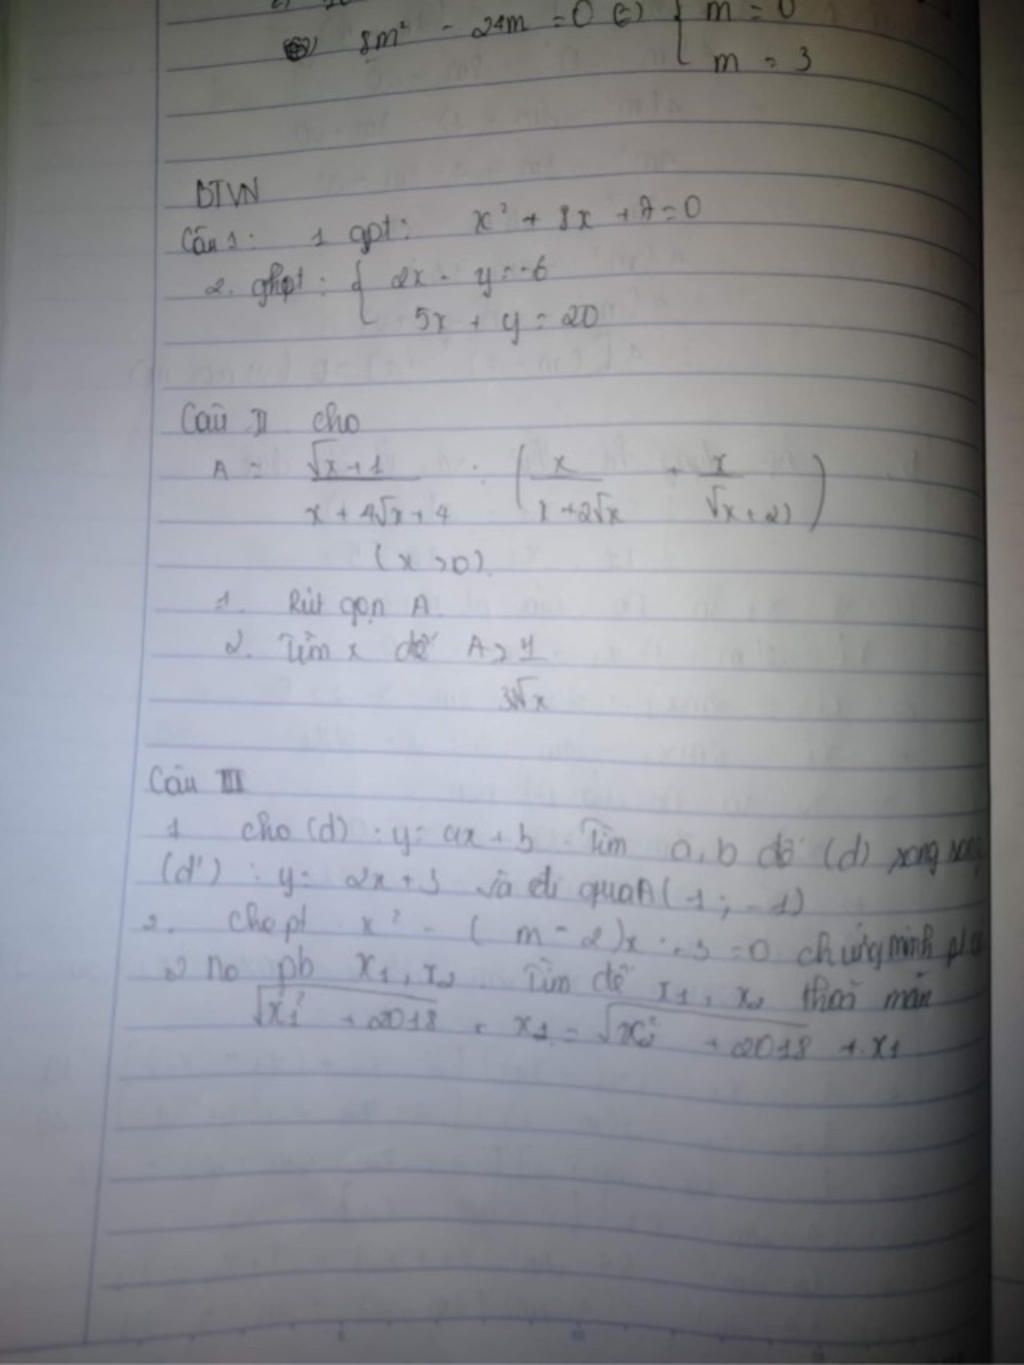 8m² - 24m = 0 (=) { m = 0
m = 3
BTVN
Câu 1: 1 gpt: x² + 8x + 7 = 0
2. ghpt: { 2x - y = -6
5x + y = 20
Câu II cho
A = √x + 1 / x + 4√x + 4 : ( x / x + 2√x + x / √x + 2 )
(x > 0).
1. Rút gọn A.
2. Tìm x để A > 1 / 3√x
Câu III
1 cho (d): y = ax + b Tìm a, b để (d) song song
(d'): y = 2x + 3 và đi qua A (1; -1)
2. Cho pt x² - (m - 2)x - 3 = 0 chứng minh pt
2 no pb x1, x2 Tìm để x1, x2 thoả mãn
√x1² + 2018 - x1 = √x2² + 2018 + x1